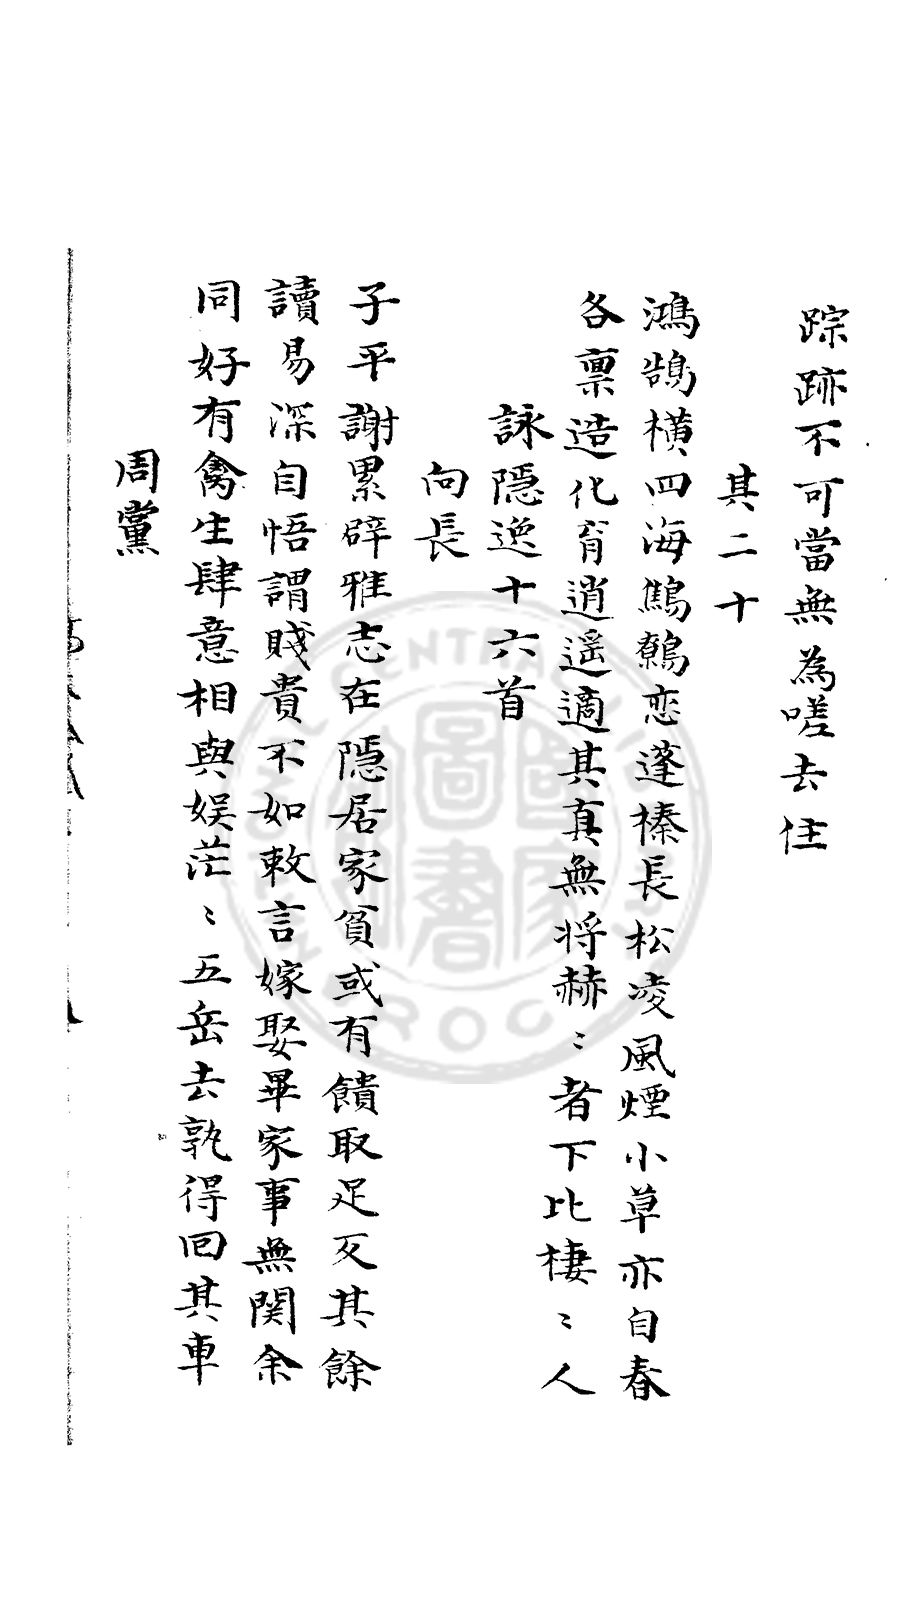 踪跡不可當無為嗟去住
其二十
鴻鵠橫四海鷦鷯恋蓬榛長松凌風煙小草亦自春
各稟造化育逍遥適其真無将赫〻者下比棲〻人
詠隠逸十六首
向長
子平謝累辟雅志在隠居家貧或有饋取足反其餘
讀易深自悟謂賤貴不如敕言嫁娶畢家事無関余
同好有禽生肆意相與娱茫〻五岳去孰得回其車
周黨